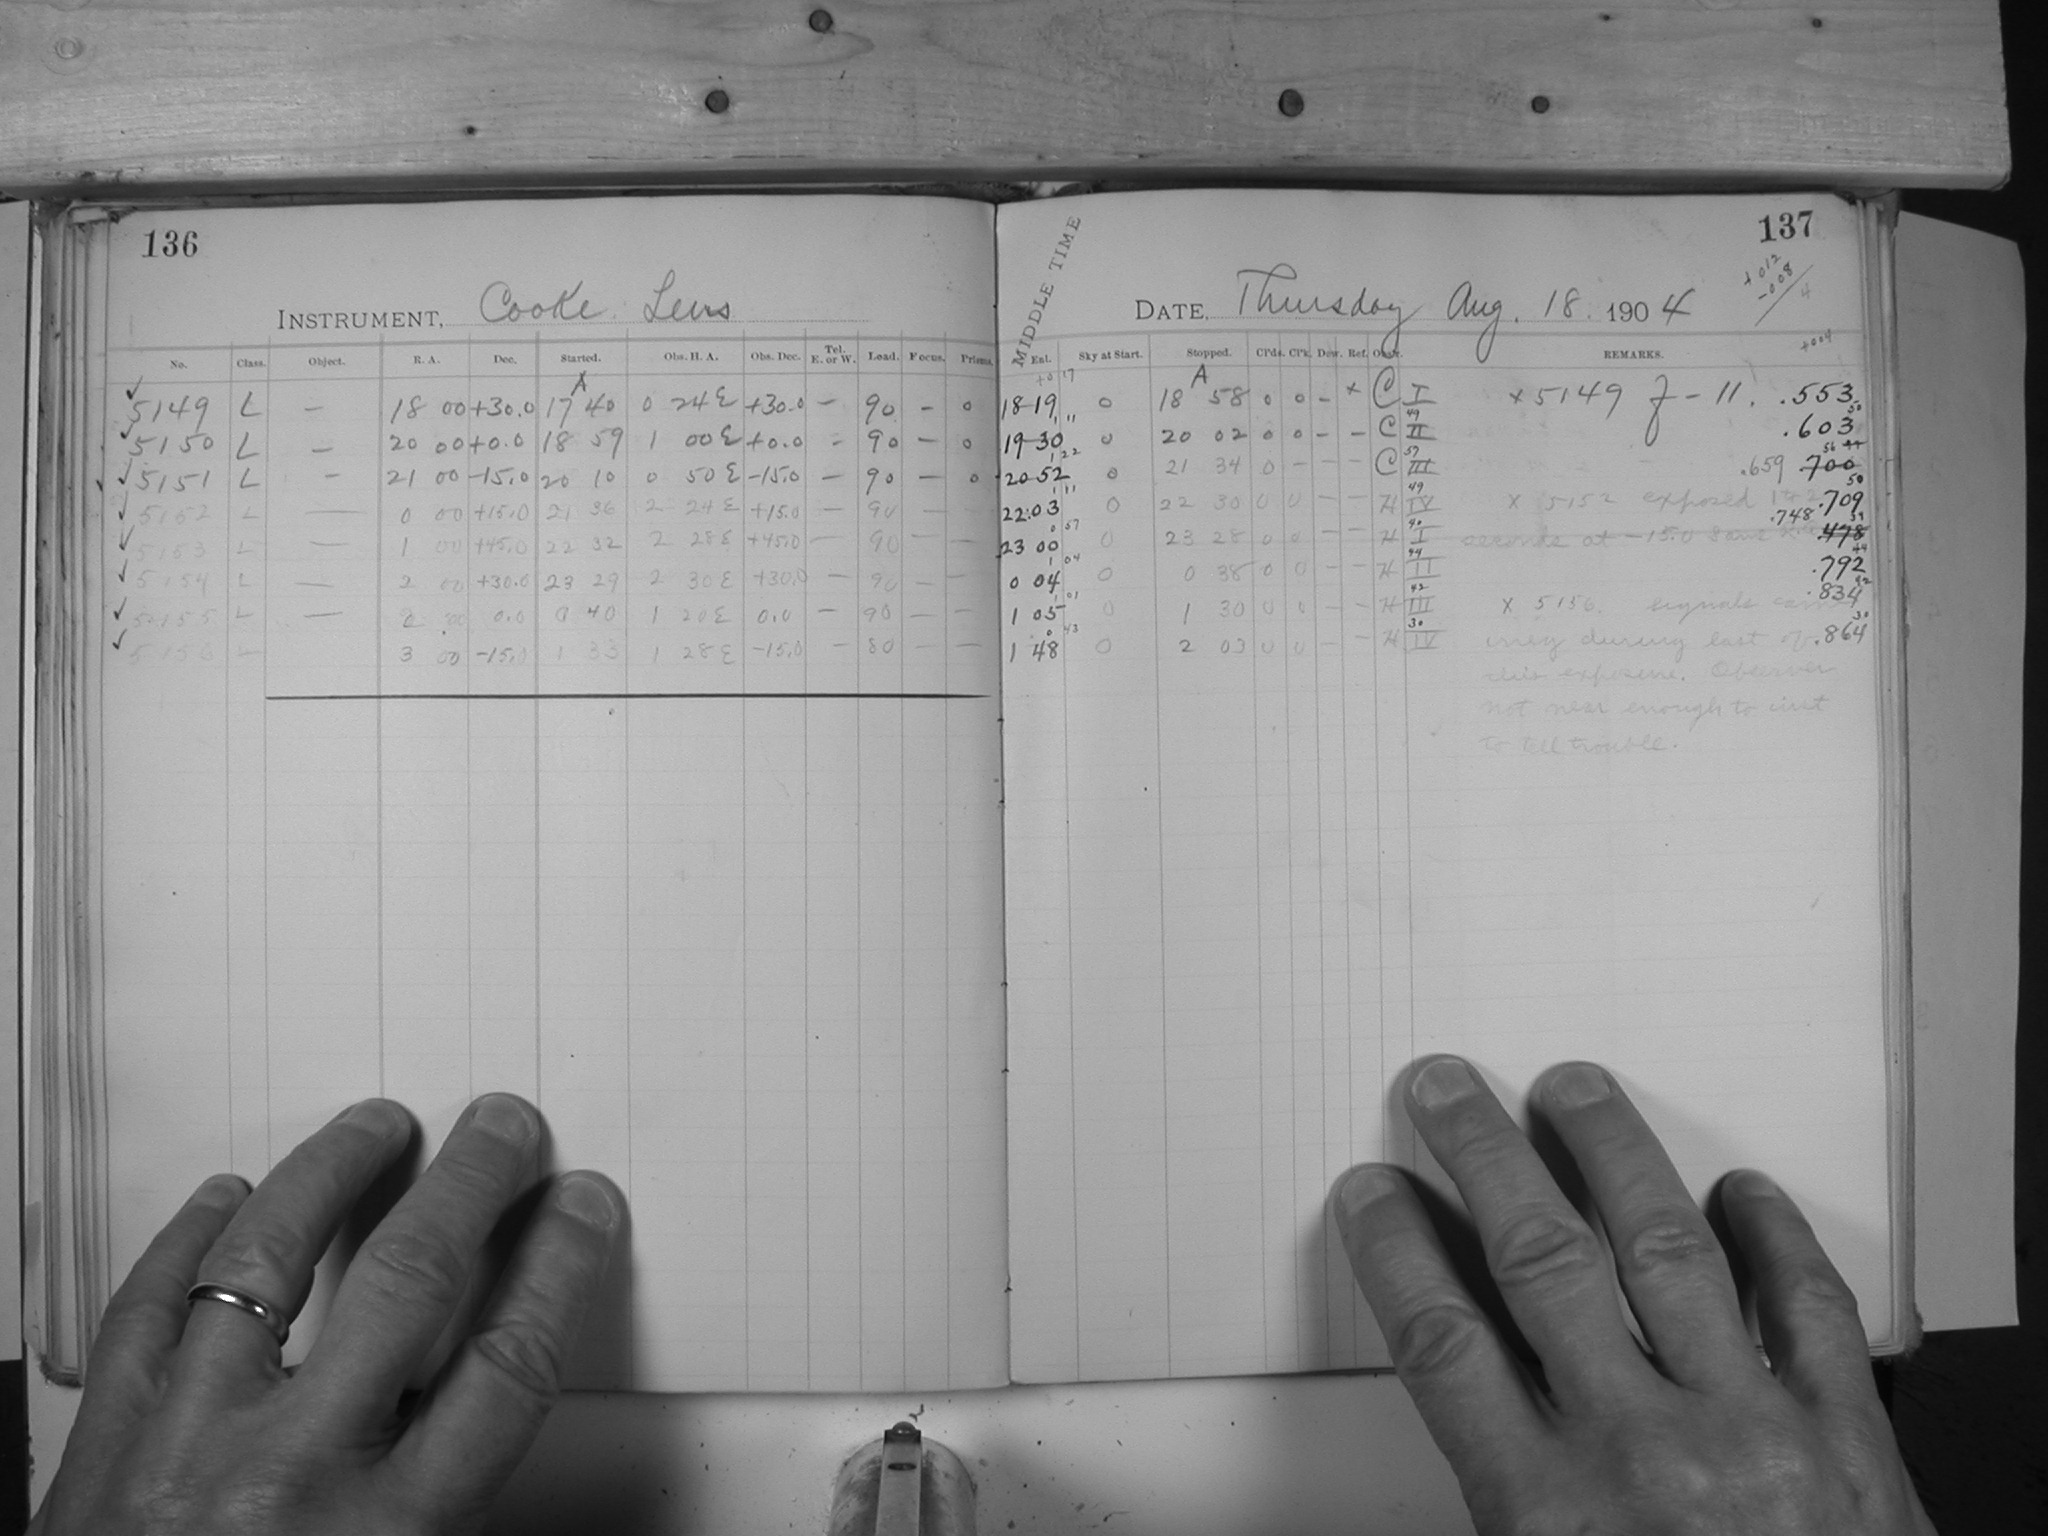 136
INSTRUMENT, Cooke Lens
No. Class. Object. R. A. Dec. Started. Obs. H. A. Obs. Dec. Tel. E. or W. Lead. Focus. Prisms.
A
5149 L — 18 00 +30.0 17 40 0 24 E +30.0 — 90 — 0
5150 L — 20 00 +0.0 18 59 1 00 E +0.0 — 90 — 0
5151 L — 21 00 -15.0 20 10 0 50 E -15.0 — 90 — 0
5152 L — 0 00 +15.0 21 36 2 24 E +15.0 — 90 — —
5153 L — 1 00 +45.0 22 32 2 28 E +45.0 — 90 — —
5154 L — 2 00 +30.0 23 29 2 30 E +30.0 — 90 — —
5155 L — 2 00 0.0 0 40 1 20 E 0.0 — 90 — —
5156 L 3 00 -15.0 1 33 1 28 E -15.0 — 80 — —
137
+012
-008
4
MIDDLE TIME
DATE, Thursday Aug. 18. 1904
Ex1. Sky at Start. Stopped. Cl'ds. Cl'k. Dew. Ref. Obs'r. REMARKS.
+004
+0 17 A
18 19 0 18 58 0 0 — x C I x 5149 f - 11. .553
1 11 49 50
19 30 0 20 02 0 0 — — C II .603
1 22 57 56 44
20 52 0 21 34 0 — — — C III .659 .700
1 11 49 50
22 03 0 22 30 0 0 — — H IV x 5152 exposed 1 to 2 .709
0 57 40 .748 39
23 00 0 23 28 0 0 — — H I seconds at -15.0 same .478
1 04 44 44
0 04 0 0 38 0 0 — — H II .792
1 01 42 42
1 05 0 1 30 0 0 — — H III x 5156. signals .834
0 43 30 30
1 48 0 2 03 0 0 — — H IV during last of .864
this exposure. Observer
not near enough to inst
to tell trouble.